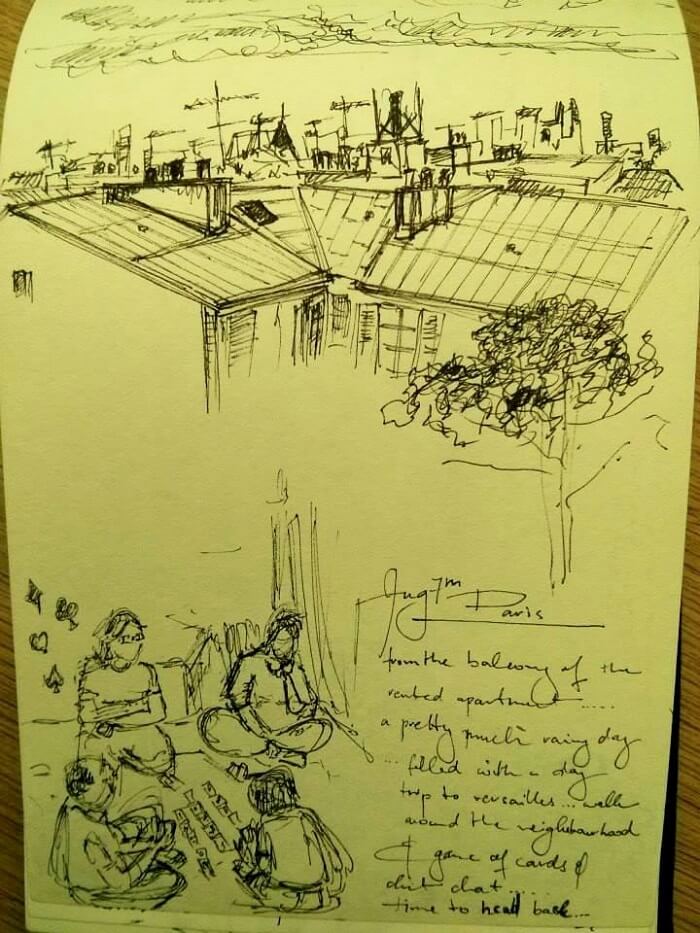 Aug 7th Paris
from the balcony of the
rented apartment.....
a pretty much rainy day
... filled with a day
trip to versailles... walk
around the neighbourhood
& game of cards &
chit chat.....
time to head back...